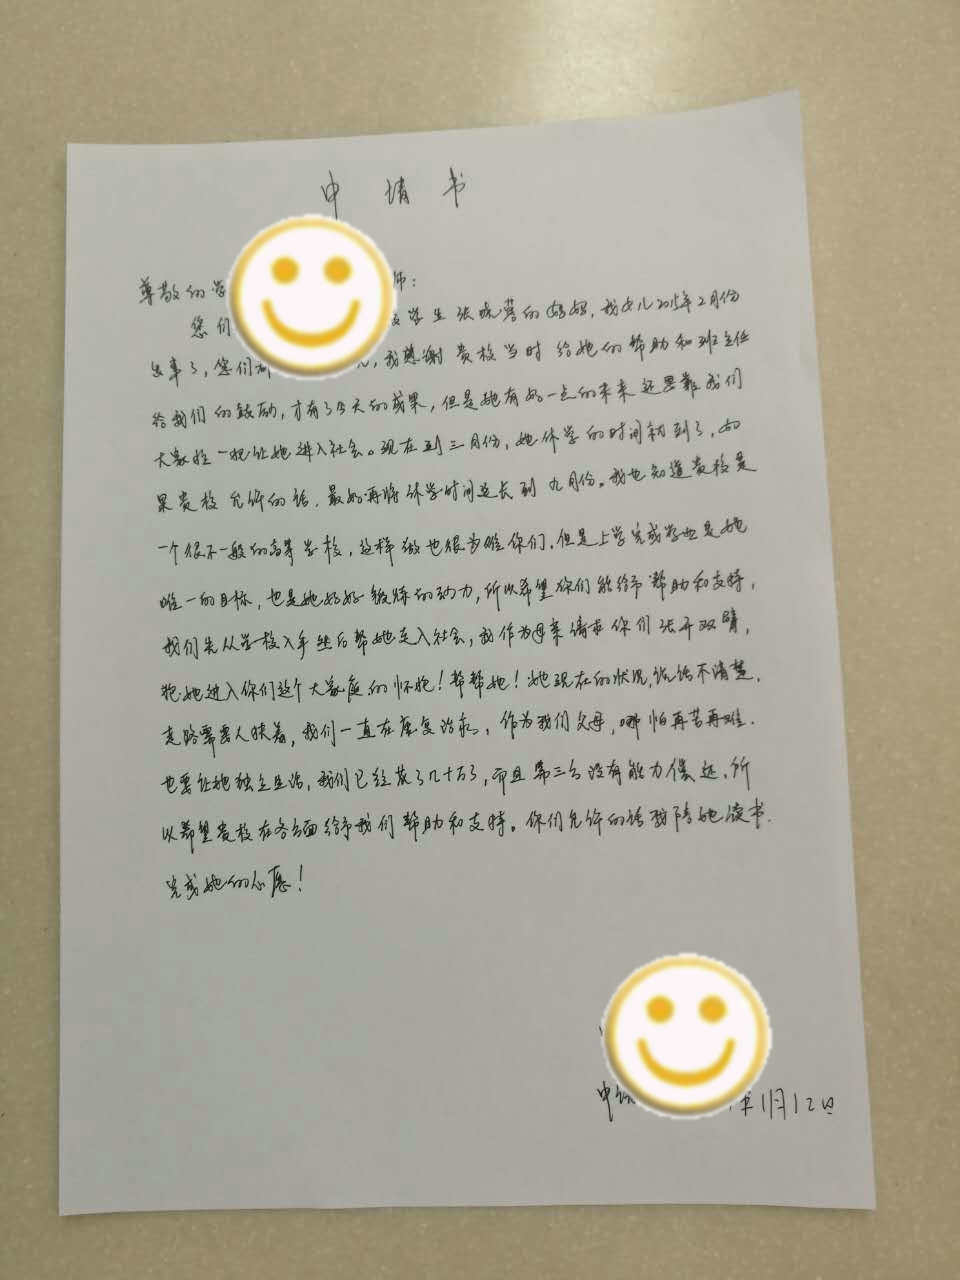 申请书
尊敬的学师：
您们学生张晓营的妈妈，我女儿2015年2月份
出事了，您们都，我感谢贵校当时给她的帮助和班主任
给我们的鼓励，才有了今天的成果，但是她有好一点的未来还要靠我们
大家拉一把让她进入社会。现在到三月份，她休学的时间就到了，如
果贵校允许的话，最好再将休学时间延长到九月份。我也知道贵校是
一个很不一般的高等学校，这样做也很为难你们，但是上学完成学业是她
唯一的目标，也是她好好锻炼的动力，所以希望你们能给予帮助和支持，
我们先从学校入手然后帮她走入社会，我作为母亲请求你们张开双臂，
抱她进入你们这个大家庭的怀抱！帮帮她！她现在的状况，说话不清楚，
走路需要人扶着，我们一直在康复治病，作为我们父母，哪怕再苦再难，
也要让她独立生活，我们已经花了几十万了，而且第三方没有能力偿还，所
以希望贵校在各方面给予我们帮助和支持。你们允许的话我陪她读书，
完成她的心愿！
申请
年1月12日